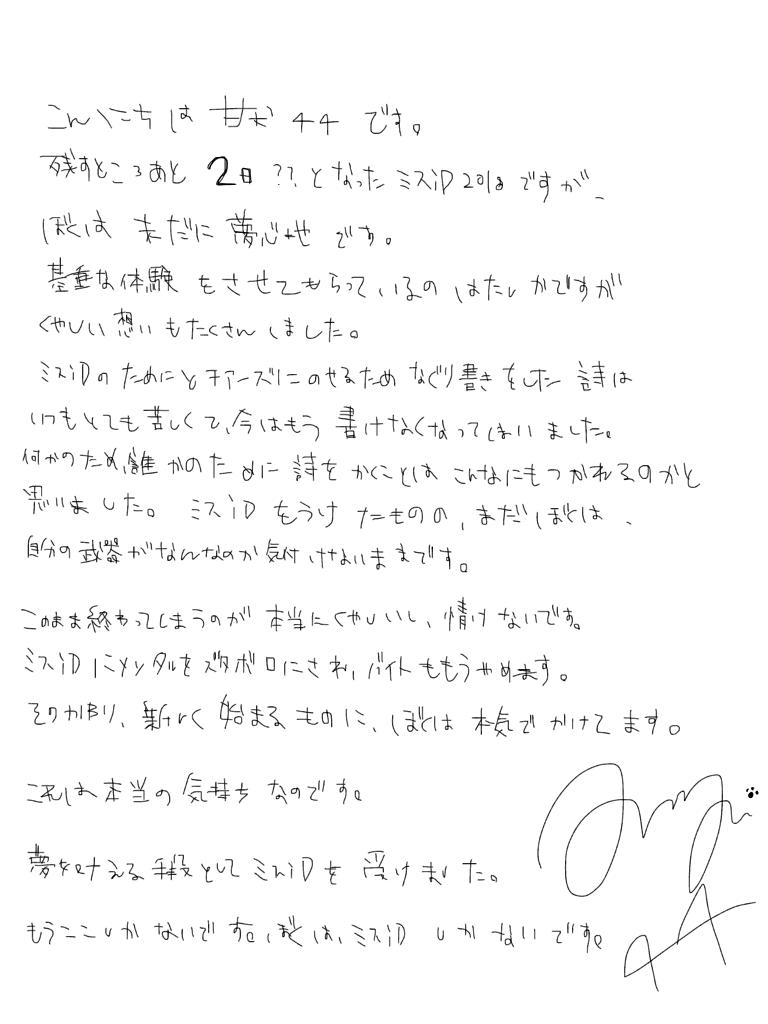 こんにちは 甘犬44 です。
残すところあと 2日 ?? となった ミスiD2018ですが、
ぼくは まだに 夢心地 です。
基重な体験 をさせてもらっているの はたしかですが
くやしい 想い もたくさん しました。
ミスiDのためにとチアーズに のせるため なぐり書きをした 詩は
いつもとても苦しくて、今はもう 書けなくなってしまいました。
何かのため、誰かのために 詩を かくことは こんなにもつかれるのかと
思いました。 ミスiD をうけたものの、まだぼくは、
自分の武器がなんなのか気付けないままです。
このまま終わってしまうのが 本当にくやしいし、情けないです。
ミスiDにメンタルをズタボロにされ、バイトももうやめます。
その代わり、新しく 始まる ものに、ぼくは 本気で かけてます。
これは本当の気持ち なのです。
夢を叶える手段として ミスiDを 受けました。
もうここしか ないです。ぼくは、ミスiD しか ないです。
44